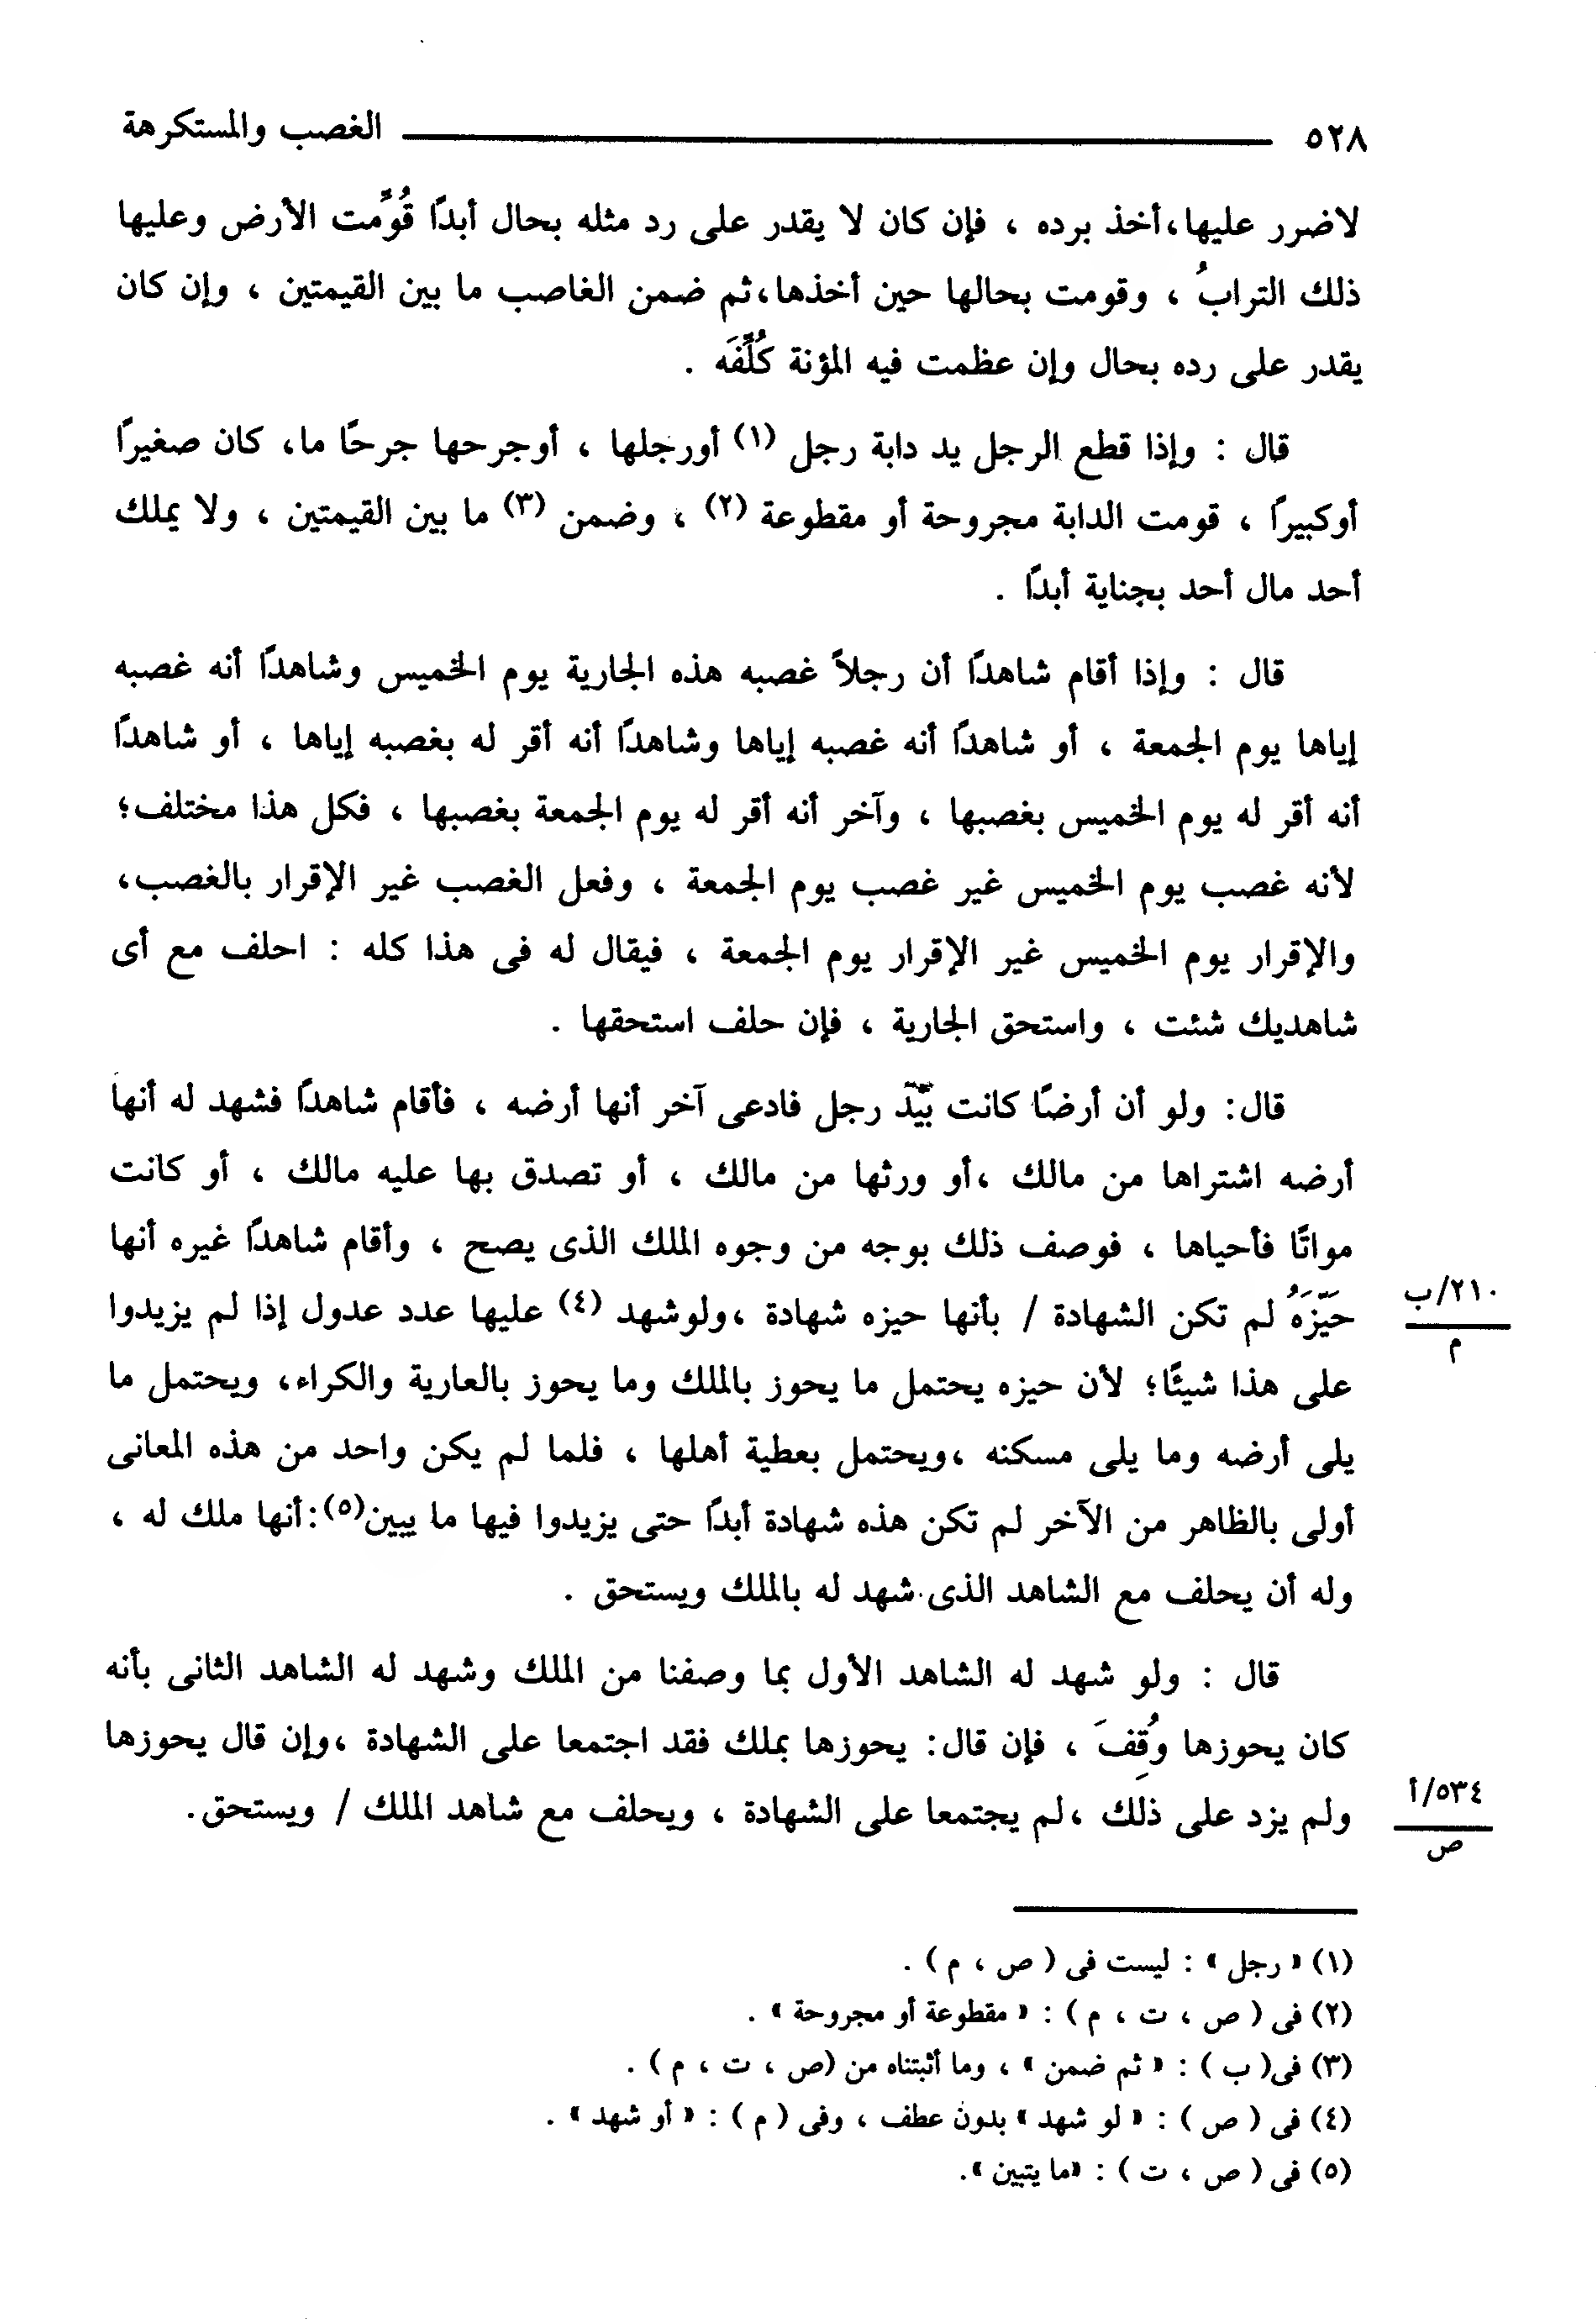 ٥٢٨ الغصب والمستكرهة
لاضرر عليها ،أخذ برده ، فإن كان لا يقدر على رد مثله بحال أبدًا قُوِّمت الأرض وعليها
ذلك الترابُ ، وقومت بحالها حين أخذها ،ثم ضمن الغاصب ما بين القيمتين ، وإن كان
يقدر على رده بحال وإن عظمت فيه المؤنة كُلِّفَه .
قال : وإذا قطع الرجل يد دابة رجل (١) أورجلها ، أوجرحها جرحًا ما، كان صغيرًا
أوكبيرًا ، قومت الدابة مجروحة أو مقطوعة (٢) ، وضمن (٣) ما بين القيمتين ، ولا يملك
أحد مال أحد بجناية أبدًا .
قال : وإذا أقام شاهدًا أن رجلاً غصبه هذه الجارية يوم الخميس وشاهدًا أنه غصبه
إياها يوم الجمعة ، أو شاهدًا أنه غصبه إياها وشاهدًا أنه أقر له بغصبه إياها ، أو شاهدًا
أنه أقر له يوم الخميس بغصبها ، وآخر أنه أقر له يوم الجمعة بغصبها ، فكل هذا مختلف؛
لأنه غصب يوم الخميس غير غصب يوم الجمعة ، وفعل الغصب غير الإقرار بالغصب،
والإقرار يوم الخميس غير الإقرار يوم الجمعة ، فيقال له فى هذا كله : احلف مع أى
شاهديك شئت ، واستحق الجارية ، فإن حلف استحقها .
قال: ولو أن أرضًا كانت بِيَدِ رجل فادعى آخر أنها أرضه ، فأقام شاهدًا فشهد له أنها
أرضه اشتراها من مالك ،أو ورثها من مالك ، أو تصدق بها عليه مالك ، أو كانت
مواتًا فأحياها ، فوصف ذلك بوجه من وجوه الملك الذى يصح ، وأقام شاهدًا غيره أنها
حَيِّزَهُ لم تكن الشهادة / بأنها حيزه شهادة ،ولوشهد (٤) عليها عدد عدول إذا لم يزيدوا
٢١٠/ب
م
على هذا شيئًا؛ لأن حيزه يحتمل ما يحوز بالملك وما يحوز بالعارية والكراء، ويحتمل ما
يلى أرضه وما يلى مسكنه ،ويحتمل بعطية أهلها ، فلما لم يكن واحد من هذه المعانى
أولى بالظاهر من الآخر لم تكن هذه شهادة أبدًا حتى يزيدوا فيها ما يبين(٥):أنها ملك له ،
وله أن يحلف مع الشاهد الذى شهد له بالملك ويستحق .
قال : ولو شهد له الشاهد الأول بما وصفنا من الملك وشهد له الشاهد الثانى بأنه
كان يحوزها وُقِفَ ، فإن قال: يحوزها بملك فقد اجتمعا على الشهادة ،وإن قال يحوزها
ولم يزد على ذلك ،لم يجتمعا على الشهادة ، ويحلف مع شاهد الملك / ويستحق.
٥٣٤/أ
ص
(١) « رجل » : ليست فى ( ص ، م ) .
(٢) فى ( ص ، ت ، م ) : « مقطوعة أو مجروحة » .
(٣) فى( ب ) : « ثم ضمن » ، وما أثبتناه من (ص ، ت ، م ) .
(٤) فى ( ص ) : « لو شهد » بدون عطف ، وفى ( م ) : « أو شهد » .
(٥) فى ( ص ، ت ) : «ما يتبين ».